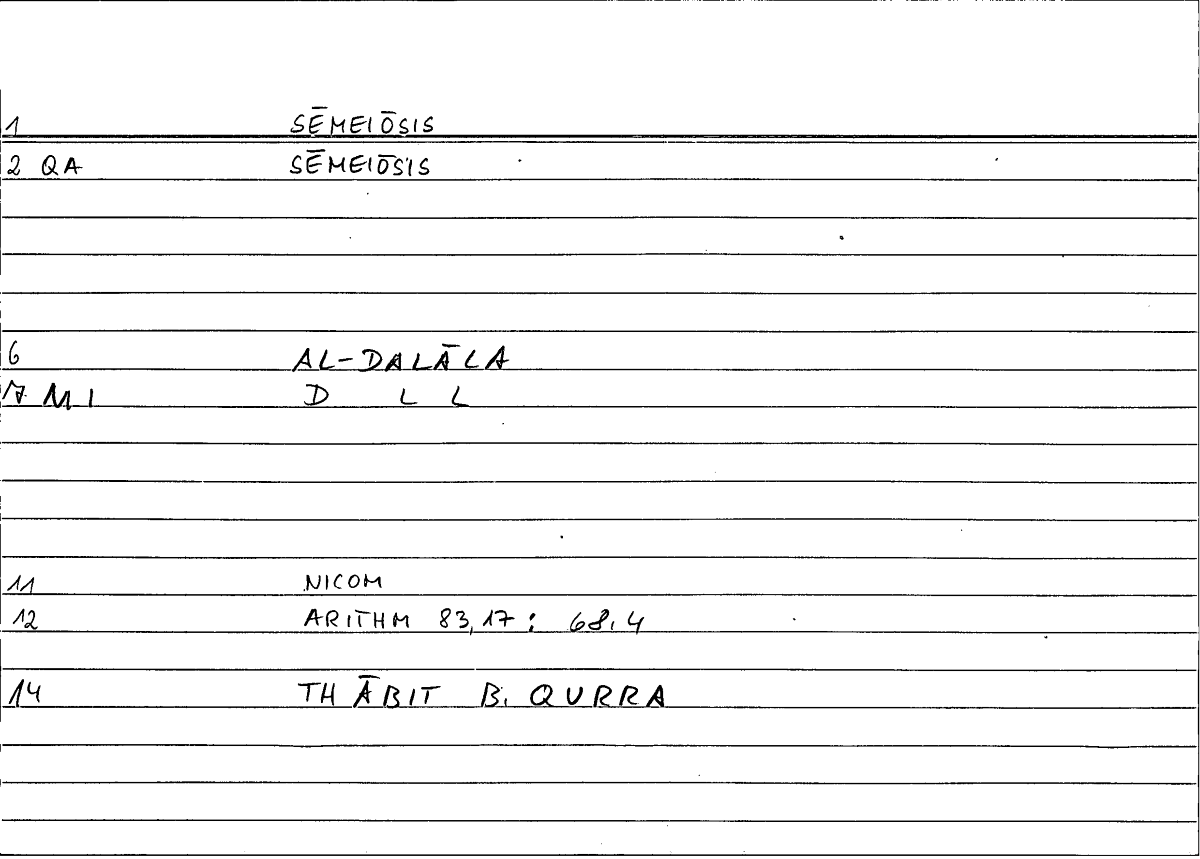 1 SĒMEIŌSIS
2 QA SĒMEIŌSIS
6 AL-DALĀLA
7 MI D L L
11 NICOM
12 ARITHM 83,17 : 68,4
14 THĀBIT B. QURRA